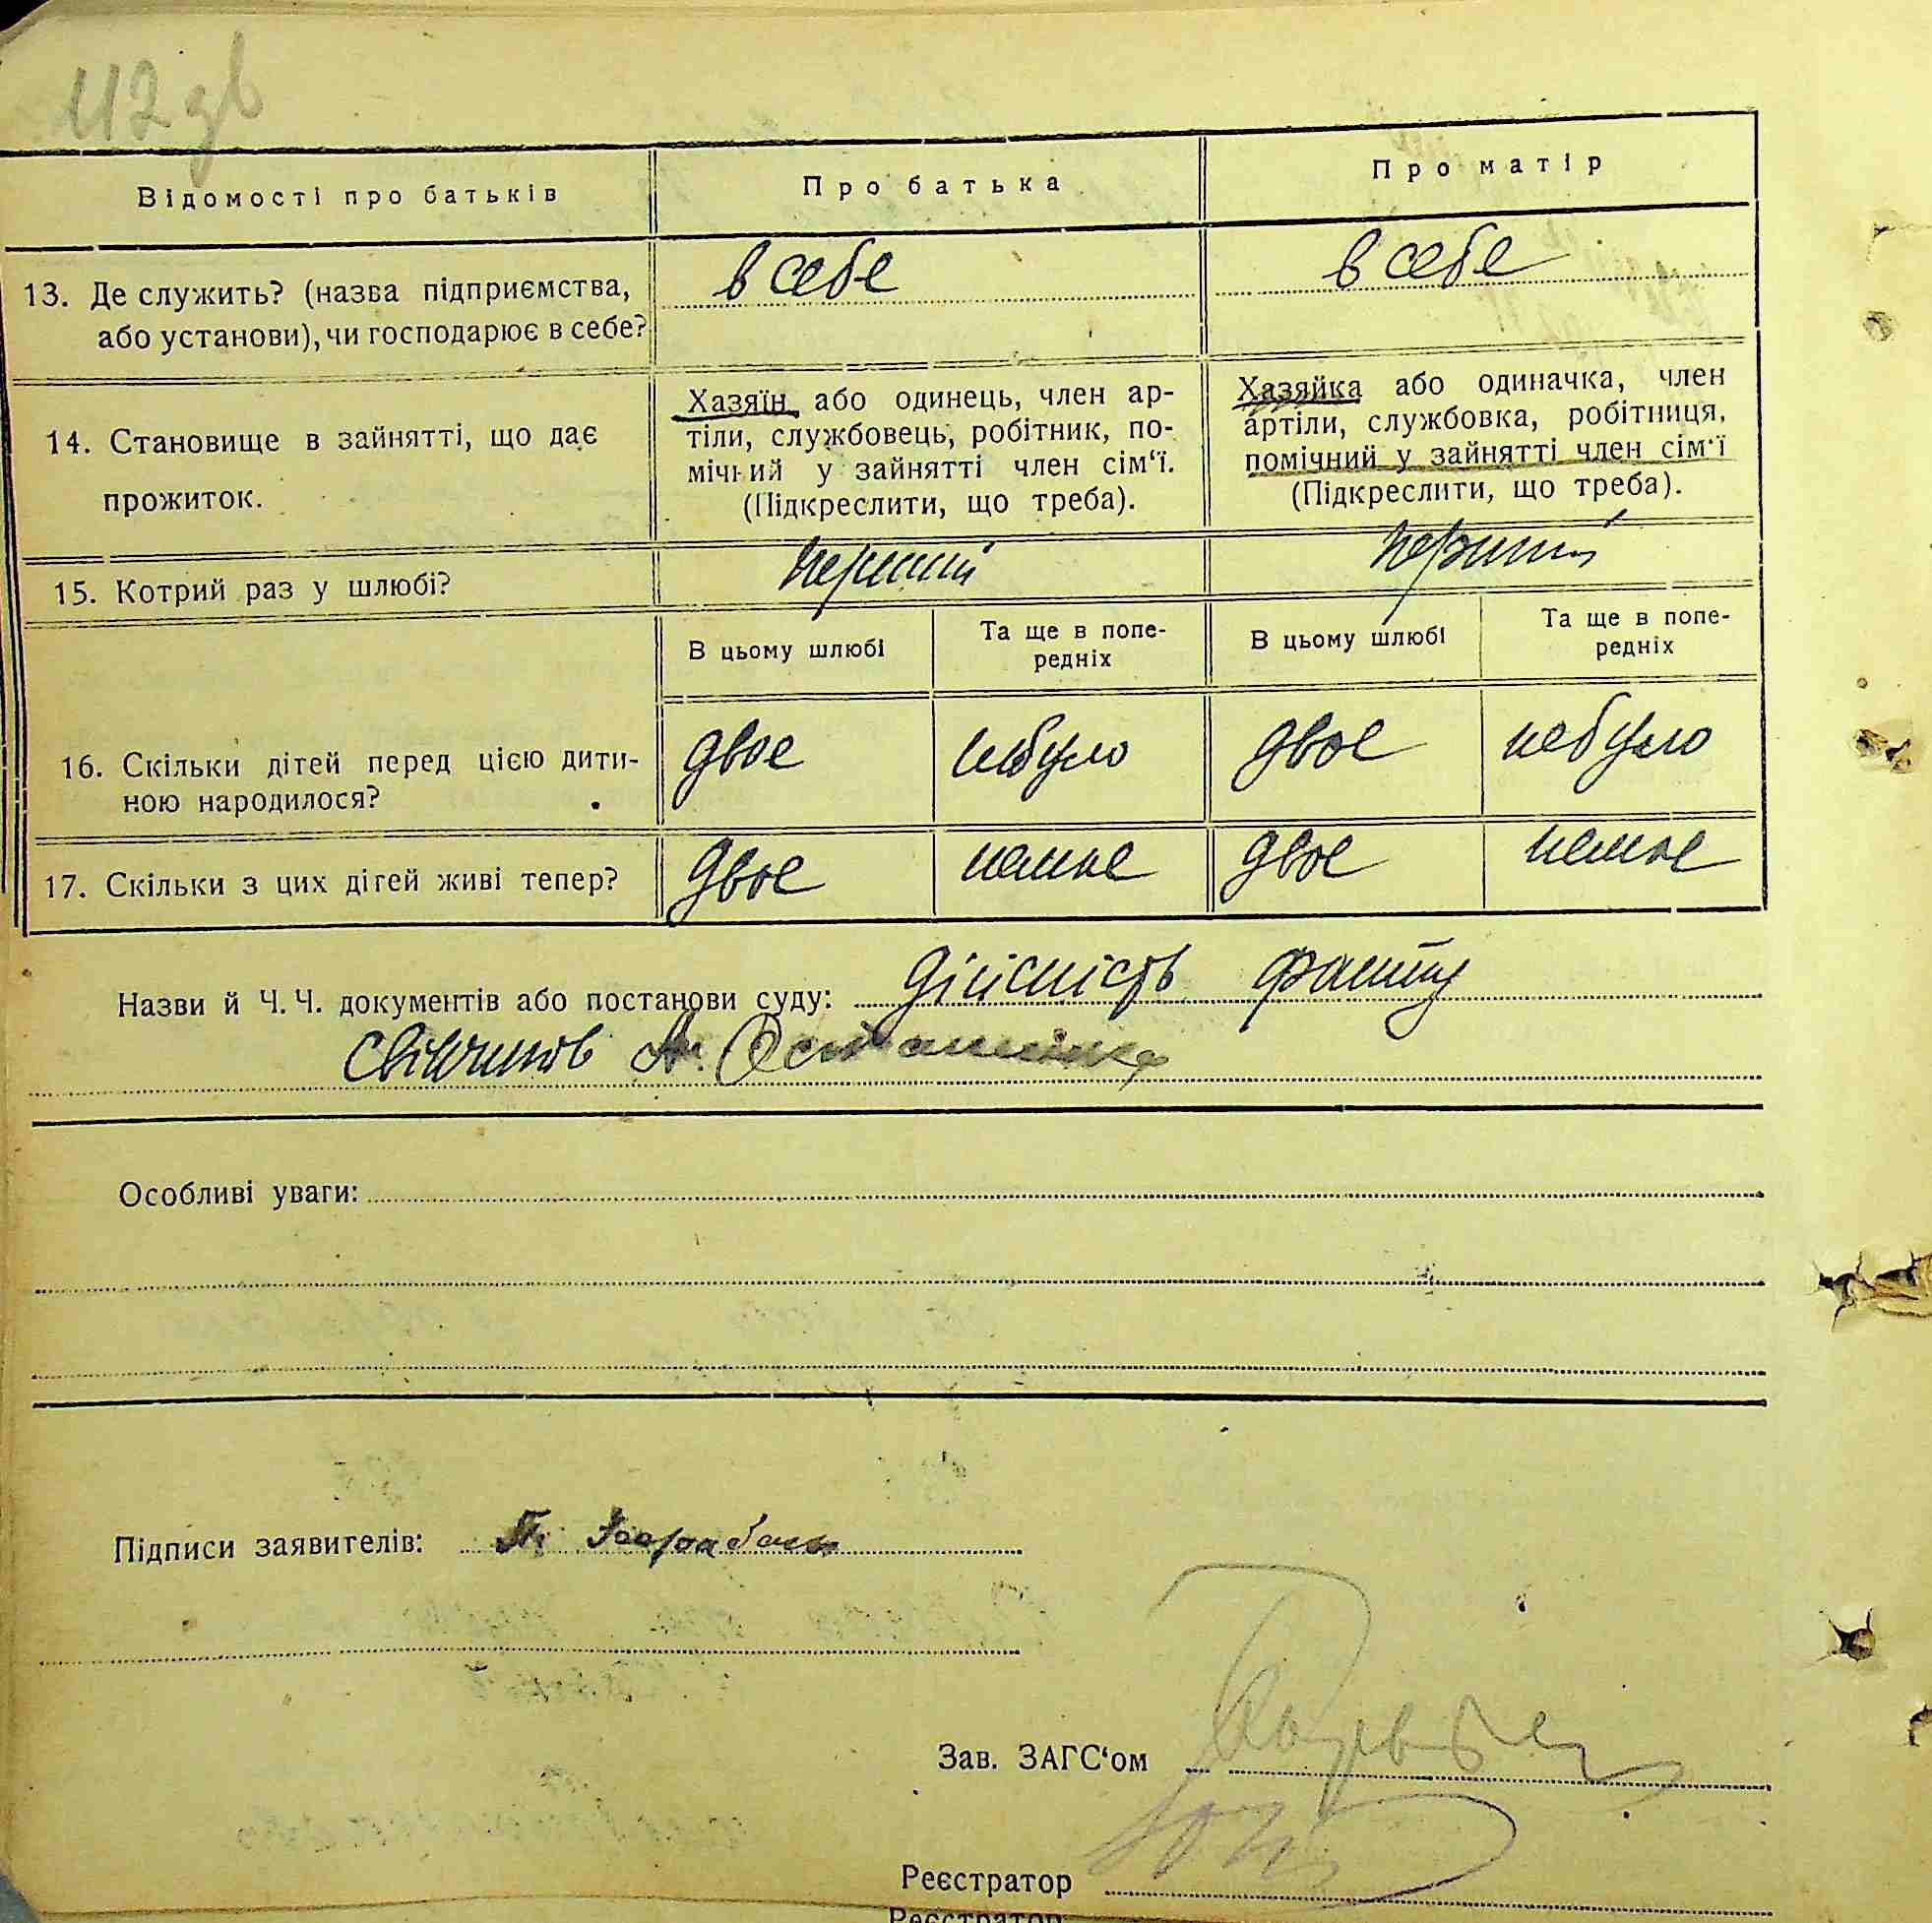 112 зв
Відомості про батьків
Про батька
Про матір
13. Де служить? (назва підприємства,
або установи), чи господарює в себе?
в себе
в себе
14. Становище в зайнятті, що дає
прожиток.
Хазяїн або одинець, член ар-
тіли, службовець, робітник, по-
мічний у зайнятті член сім‘ї.
(Підкреслити, що треба).
Хазяйка або одиначка, член
артіли, службовка, робітниця,
помічний у зайнятті член сім‘ї
(Підкреслити, що треба).
15. Котрий раз у шлюбі?
перший
перший
В цьому шлюбі
Та ще в попе-
редніх
В цьому шлюбі
Та ще в попе-
редніх
16. Скільки дітей перед цією дити-
ною народилося?
двое
небуло
двое
небуло
17. Скільки з цих дітей живі тепер?
двое
немає
двое
немає
Назви й Ч. Ч. документів або постанови суду: дійсність факту
свідчив
Особливі уваги:
Підписи заявителів:
Зав. ЗАГС‘ом
Реєстратор
Реєстратор